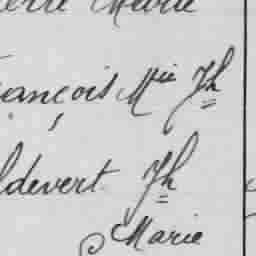 erre Marie
rançois Mie Jh
ldevert Jh
Marie